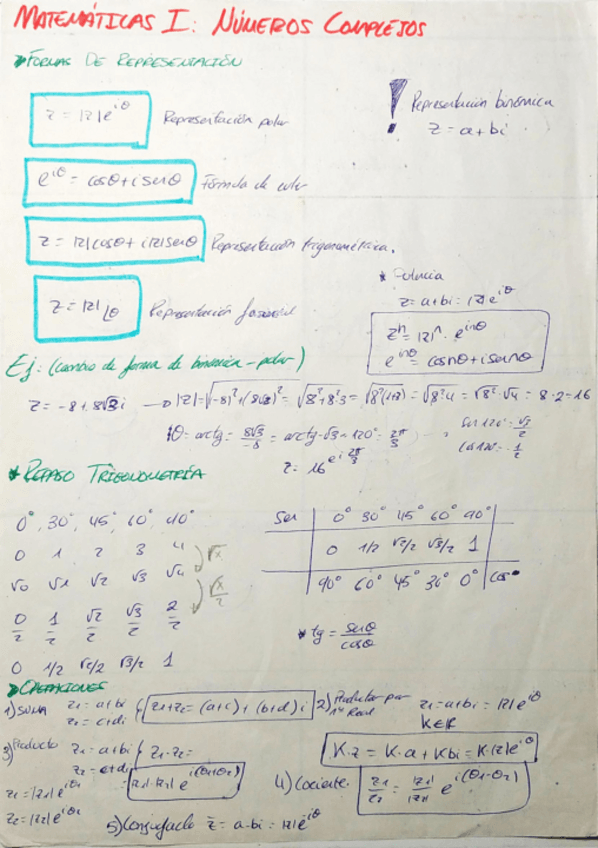 MATEMÁTICAS I: NÚMEROS COMPLEJOS
FORMAS DE REPRESENTACIÓN
z = |z|e^{iθ} Representación polar
! Representación binómica
z = a+bi
e^{iθ} = cosθ+isenθ Fórmula de euler
z = |z|cosθ+i|z|senθ Representación trigonométrica.
z = |z|∠θ Representación fasorial
* Potencia
z = a+bi = |z|e^{iθ}
z^n = |z|^n · e^{inθ}
e^{inθ} = cosnθ+isennθ
Ej: (cambio de forma de binómica - polar)
z = -8+8√3 i → |z| = √(-8)²+(8√3)² = √8²+8²·3 = √8²(1+3) = √8²·4 = √8²·√4 = 8·2 = 16
θ = arctg = 8√3/-8 = arctg -√3 = 120° = 2π/3
sen 120° = √3/2
cos 120° = -1/2
z = 16 e^{i 2π/3}
* REPASO TRIGONOMETRÍA
0°, 30°, 45°, 60°, 90°
0 1 2 3 4
√x
√0 √1 √2 √3 √4
√x/2
0/2 1/2 √2/2 √3/2 2/2
0 1/2 √2/2 √3/2 1
Sen 0° 30° 45° 60° 90°
0 1/2 √2/2 √3/2 1
90° 60° 45° 30° 0° cos
* tg = senθ/cosθ
OPERACIONES
1) SUMA z1 = a+bi
z2 = c+di
z1+z2 = (a+c)+(b+d)i
2) Producto por
nº Real
z1 = a+bi = |z|e^{iθ}
K∈R
K·z = K·a+Kbi = K·|z|e^{iθ}
3) Producto z1 = a+bi
z2 = c+di
z1·z2 =
|z1|·|z2| e^{i(θ1+θ2)}
z1 = |z1|e^{iθ1}
z2 = |z2|e^{iθ2}
4) Cociente
z1/z2 = |z1|/|z2| e^{i(θ1-θ2)}
5) Conjugado z̄ = a-bi =